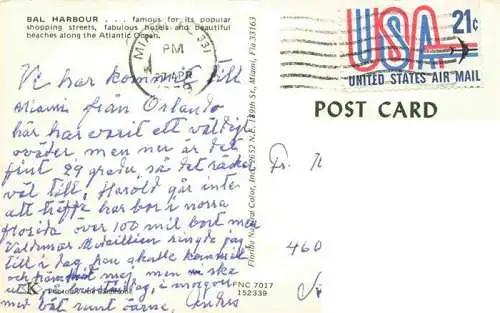 BAL HARBOUR . . . famous for its popular
shopping streets, fabulous hotels and beautiful
beaches along the Atlantic Ocean.
PM
USA 21c
UNITED STATES AIR MAIL
POST CARD
Vi har kommit till
Miami från Orlando
här har varit ett väldigt
oväder men nu är det
fint 29 grader, så det räcker
väl till, Harold går inte
att träffa har bor i norra
florida över 100 mil bort men
Valdemar ringde jag
till i dag, han skulle kommit
och mej, men vi ska
i dag, i morgon
med båt runt öarne,
Fr.
460
Florida Natural Color, Inc. 2652 N.E. 189th St., Miami, Fla 33163
FNC 7017
152339